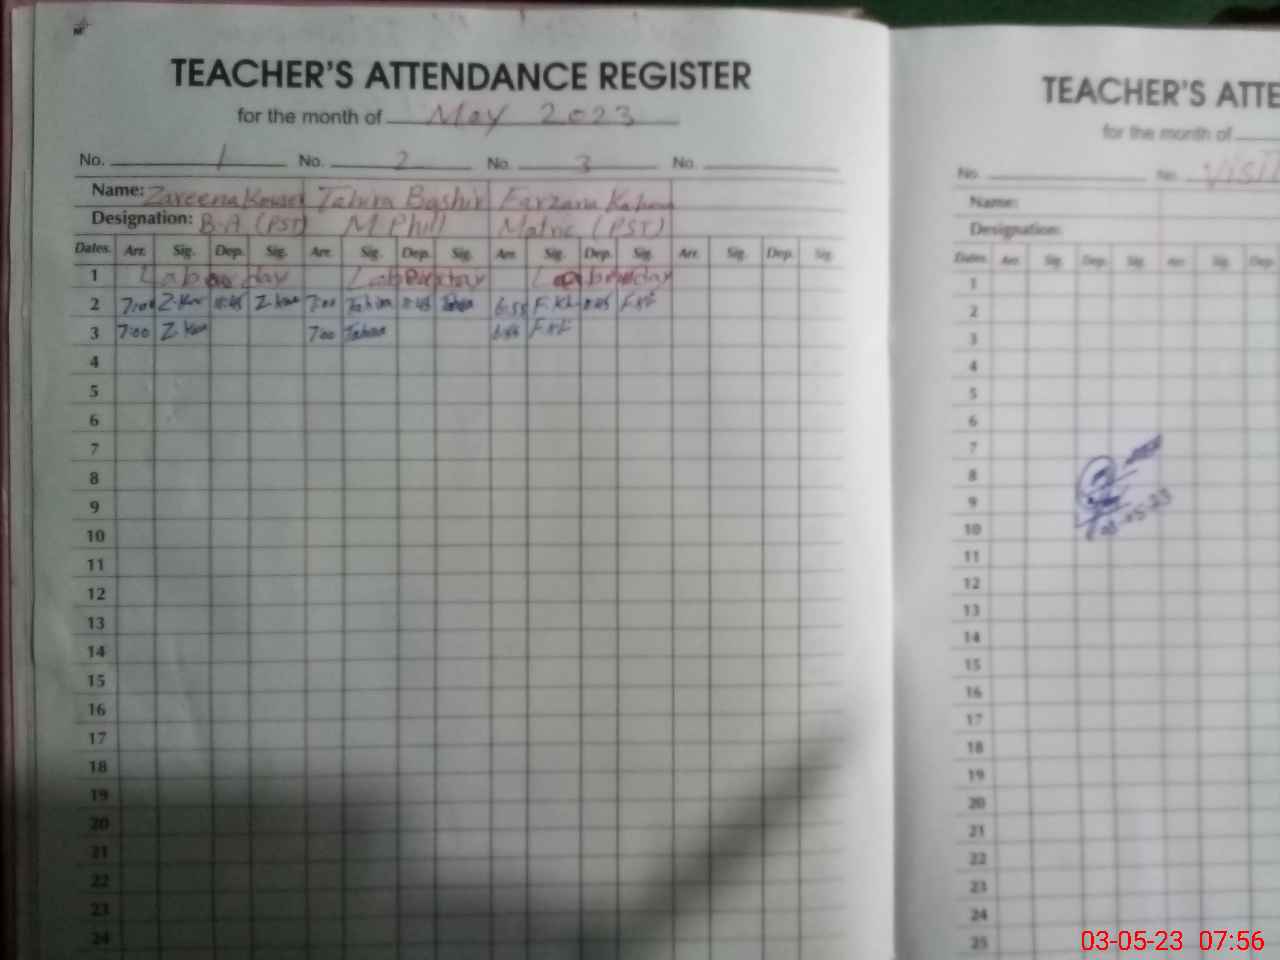 TEACHER'S ATTENDANCE REGISTER
for the month of May 2023
No. 1 No. 2 No. 3 No.
Name: Zareena Kouser Tahira Bashir Farzana
Designation: B.A (PST) M Phill Matric (PST)
Dates. Arr. Sig. Dep. Sig. Arr. Sig. Dep. Sig. Arr. Sig. Dep. Sig. Arr. Sig. Dep. Sig.
1 Labour day Labour day Labour day
2 7:00 7:00 Tahira
3 7:00 7:00 Tahira
4
5
6
7
8
9
10
11
12
13
14
15
16
17
18
19
20
21
22
23
24
TEACHER'S ATTE
for the month of
No. No. VISIT
Name:
Designation:
Dates. Arr. Sig. Dep. Sig. Arr. Sig. Dep.
1
2
3
4
5
6
7
8
9
10
03-05-23
11
12
13
14
15
16
17
18
19
20
21
22
23
24
25
03-05-23 07:56